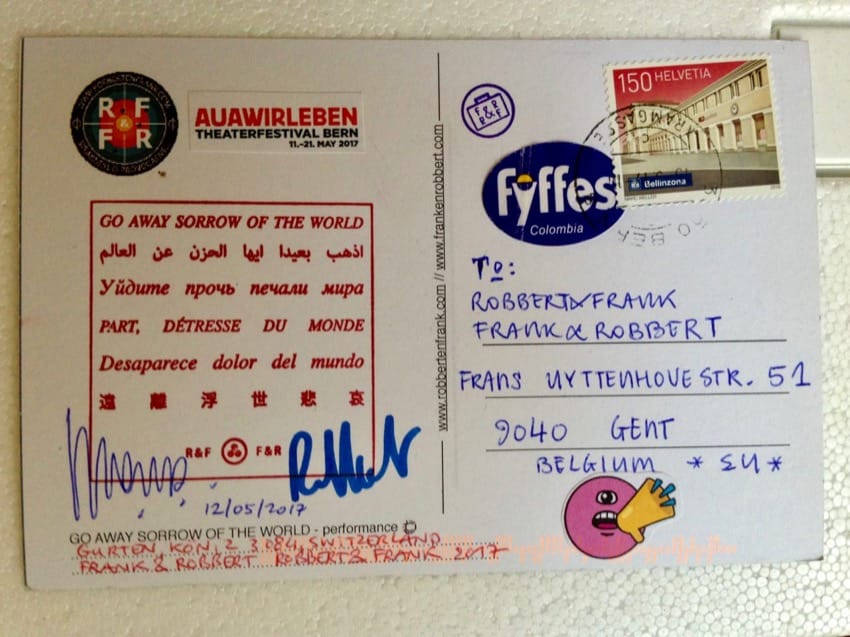 R F
&
F R
AUAWIRLEBEN
THEATERFESTIVAL BERN
11.–21. MAY 2017
GO AWAY SORROW OF THE WORLD
اذهب بعيدا ايها الحزن عن العالم
Уйдите прочь печали мира
PART, DÉTRESSE DU MONDE
Desaparece dolor del mundo
遠離浮世悲哀
R&F F&R
12/05/2017
GO AWAY SORROW OF THE WORLD - performance ©
GURTEN, KÖNIZ 3084, SWITZERLAND
FRANK & ROBBERT ROBBERT & FRANK 2017
www.robbertenfrank.com // www.frankenrobbert.com
F&R
R&F
150 HELVETIA
Bellinzona
fyffes
Colombia
To:
ROBBERT & FRANK
FRANK & ROBBERT
FRANS UYTTENHOVESTR. 51
9040 GENT
BELGIUM * EU *